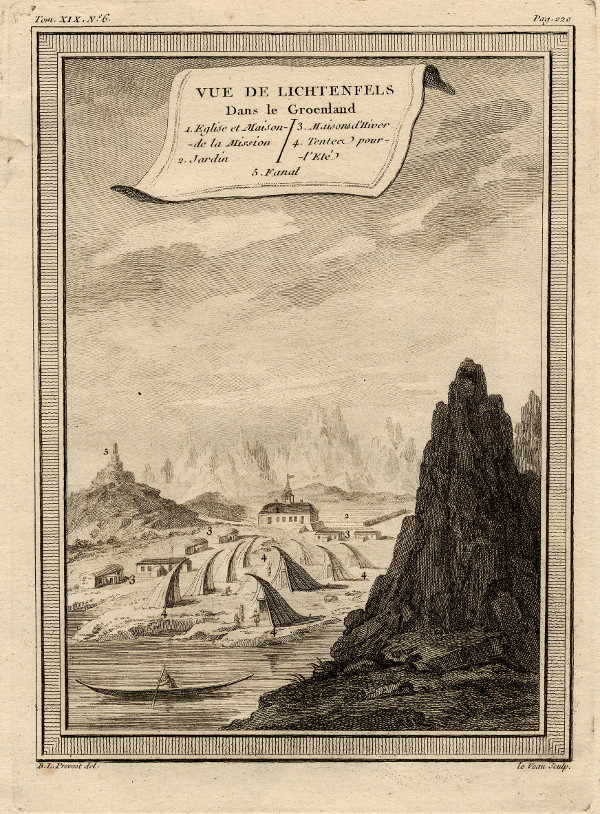 Tom. XIX. N.º 6.
Pag. 220
VUE DE LICHTENFELS
Dans le Groenland
1. Eglise et Maison-
-de la Mission
2. Jardin
3. Maisons d'Hiver
4. Tentes pour-
-l'Eté
5. Fanal
5
2
3
3
3
3
4
4
4
4
B. L. Prevost del.
le Veau Sculp.